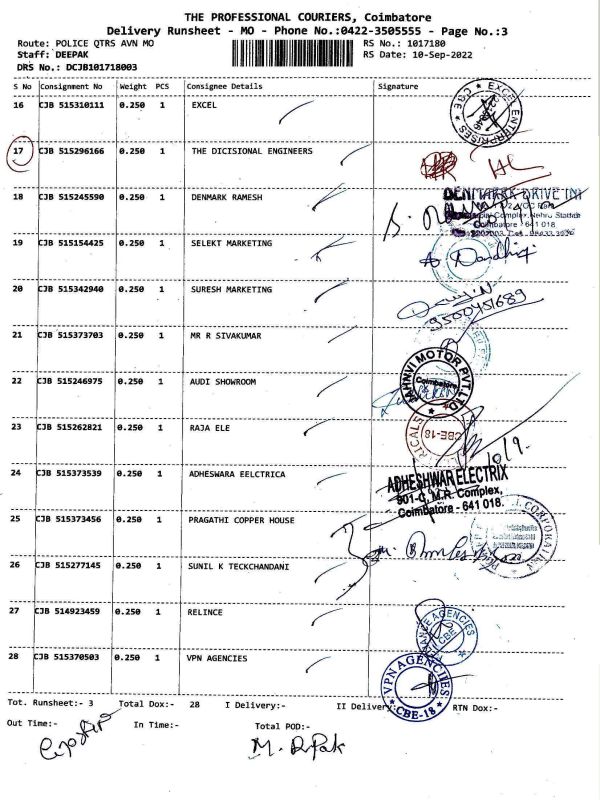 THE PROFESSIONAL COURIERS, Coimbatore
Delivery Runsheet - MO - Phone No.:0422-3505555 - Page No.:3
Route: POLICE QTRS AVN MO RS No.: 1017180
Staff: DEEPAK RS Date: 10-Sep-2022
DRS No.: DCJB101718003
S No Consignment No Weight PCS Consignee Details Signature
16 CJB 515310111 0.250 1 EXCEL
EXCEL ENTERPRISES * CBE *
17 CJB 515296166 0.250 1 THE DICISIONAL ENGINEERS
18 CJB 515245590 DENMARK RAMESH 0.250 1
DENMARK DRIVE
Complex, Nehru
Coimbatore - 641 018
19 CJB 515154425 0.250 1 SELEKT MARKETING
20 CJB 515342940 0.250 1 SURESH MARKETING
9500451689
21 CJB 515373703 0.250 1 MR R SIVAKUMAR
22 CJB 515246975 0.250 1 AUDI SHOWROOM
JAHNVI MOTOR PVT LTD
Coimbatore
23 CJB 515262821 0.250 1 RAJA ELE
CBE-18
10/9.
24 CJB 515373539 0.250 1 ADHESWARA EELCTRICA
ADHESHWAR ELECTRIX
901-C, M.R. Complex,
Coimbatore - 641 018.
25 CJB 515373456 0.250 1 PRAGATHI COPPER HOUSE
26 CJB 515277145 0.250 1 SUNIL K TECKCHANDANI
27 CJB 514923459 0.250 1 RELINCE
AGENCIES
CBE
28 CJB 515370503 0.250 1 VPN AGENCIES
VPN AGENCIES
* CBE-18 *
Tot. Runsheet:- 3 Total Dox:- 28 I Delivery:- II Delivery:- RTN Dox:-
Out Time:- In Time:- Total POD:-
M. Depak